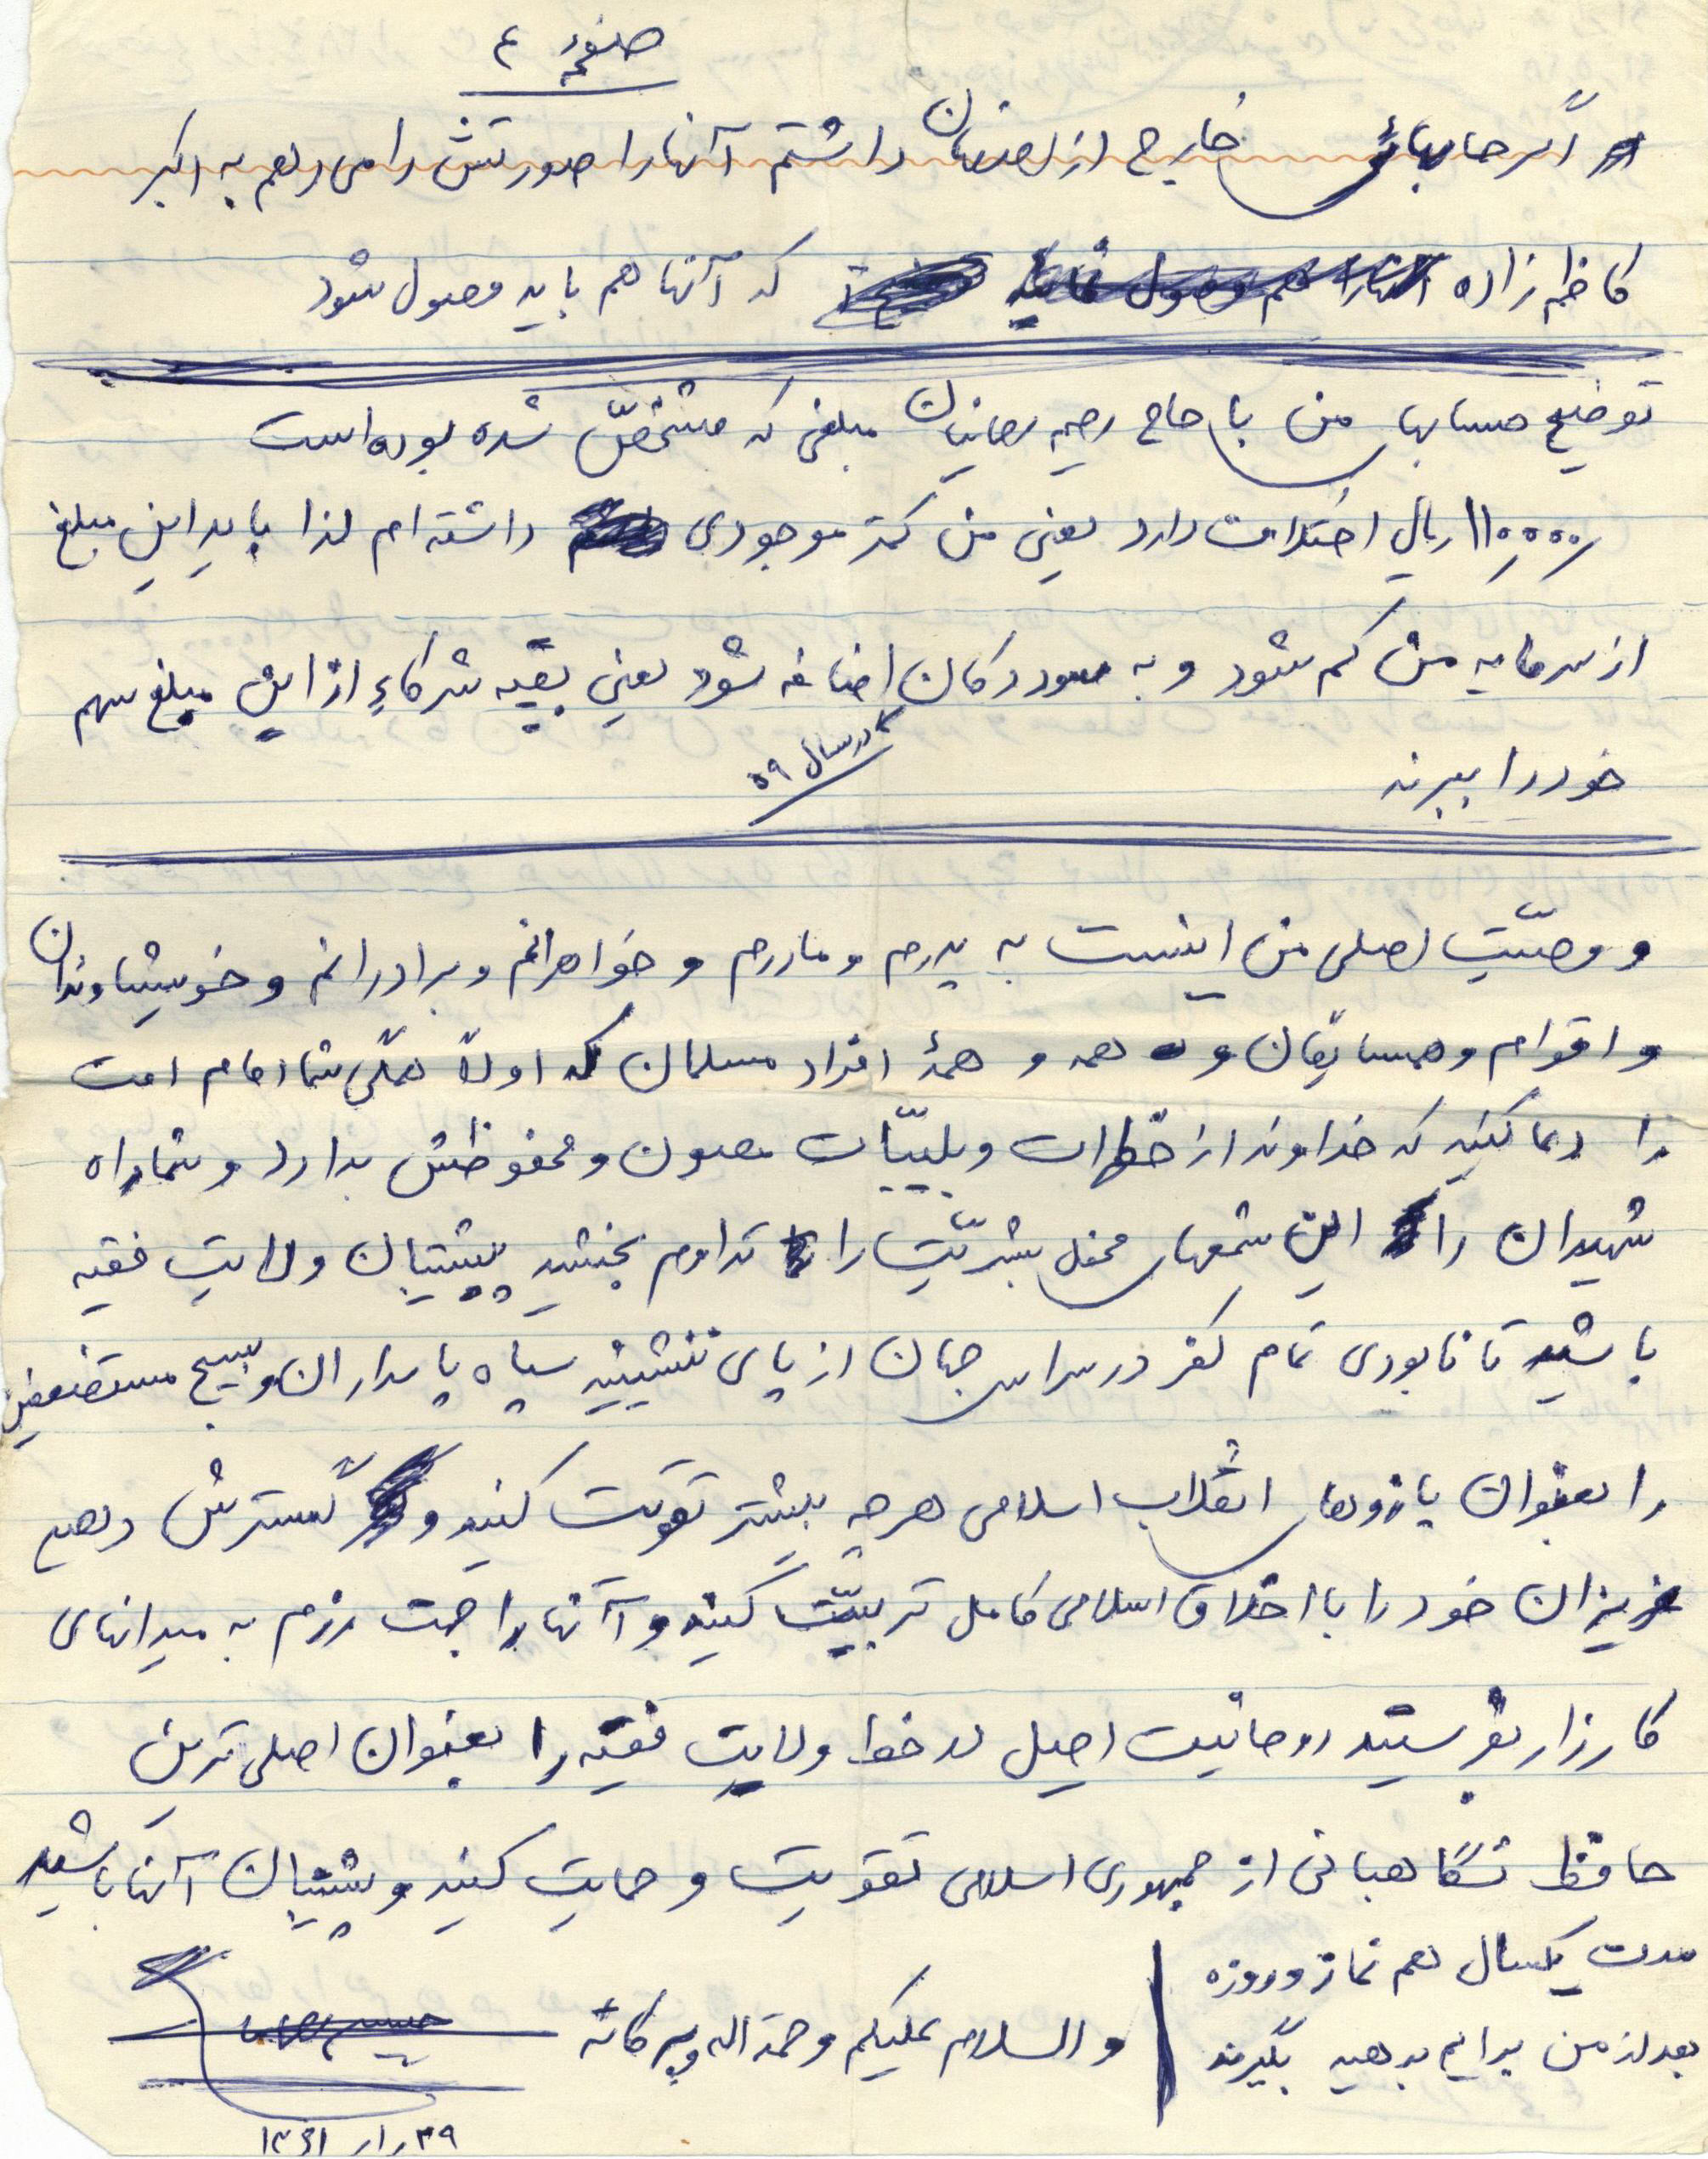 صفحهٔ ۴
اگر حسابهائی خارج از اصفهان داشتم آنها را صورتش را می دهم به اکبر
کاظم زاده که آنها هم باید وصول شود
توضیح حسابهای من با حاج رحیم مبلغی که مشخصّ شده بوده است
۱۱۰۰۰۰ ریال اختلاف دارد یعنی من کمتر موجودی داشته ام لذا باید این مبلغ
از سرمایه من کم شود و به سود دکان اضافه شود یعنی بقیّه شرکاءِ از این مبلغ سهم
در سال ۵۹
خود را ببرند
و وصیّتِ اصلی من اینست به پدرم و مادرم و خواهرانم و برادرانم و خویشاوندان
و اقوام و همسایگان و همه و همهٔ افراد مسلمان که اولاً همگی شما امام امت
را دعا کنید که خداوند از خطرات و بلیّات مصون و محفوظش بدارد و شما راه
شهیدان را این شمعهای محفل بشریّت را تداوم بخشید پشتیبان ولایت فقیه
باشید تا نابودی تمام کفر در سراسر جهان از پای ننشینید سپاه پاسداران و بسیج مستضعفین
را بعنوان بازوهای انقلاب اسلامی هرچه بیشتر تقویت کنید و گسترش دهید
عزیزان خود را با اخلاق اسلامی کامل تربیّت کنید و آنها را جهت رزم به میدانهای
کارزار بفرستید روحانیت اصیل در خط ولایت فقیه را بعنوان اصلی ترین
حافظ نگاهبانی از جمهوری اسلامی تقویت و حمایت کنید و پشتیبان آنها باشید
مدت یکسال هم نماز و روزه
بعد از من برایم بدهید بگیرند
والسلام علیکم و رحمة اله و برکاته
۱۳۶۱